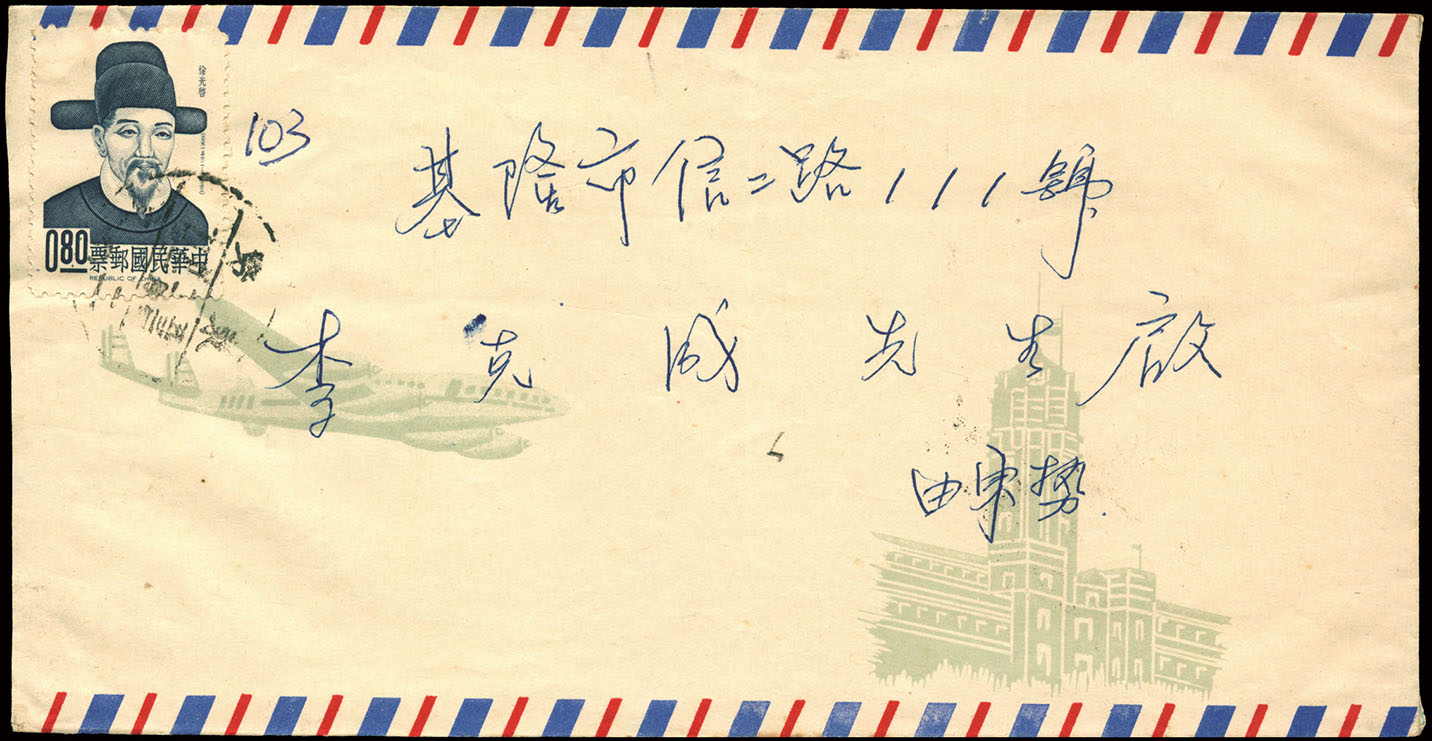 徐光啓
0.80 票郵國民華中
REPUBLIC OF CHINA
103
基隆市信二路111號
李克成先生啟
由東勢